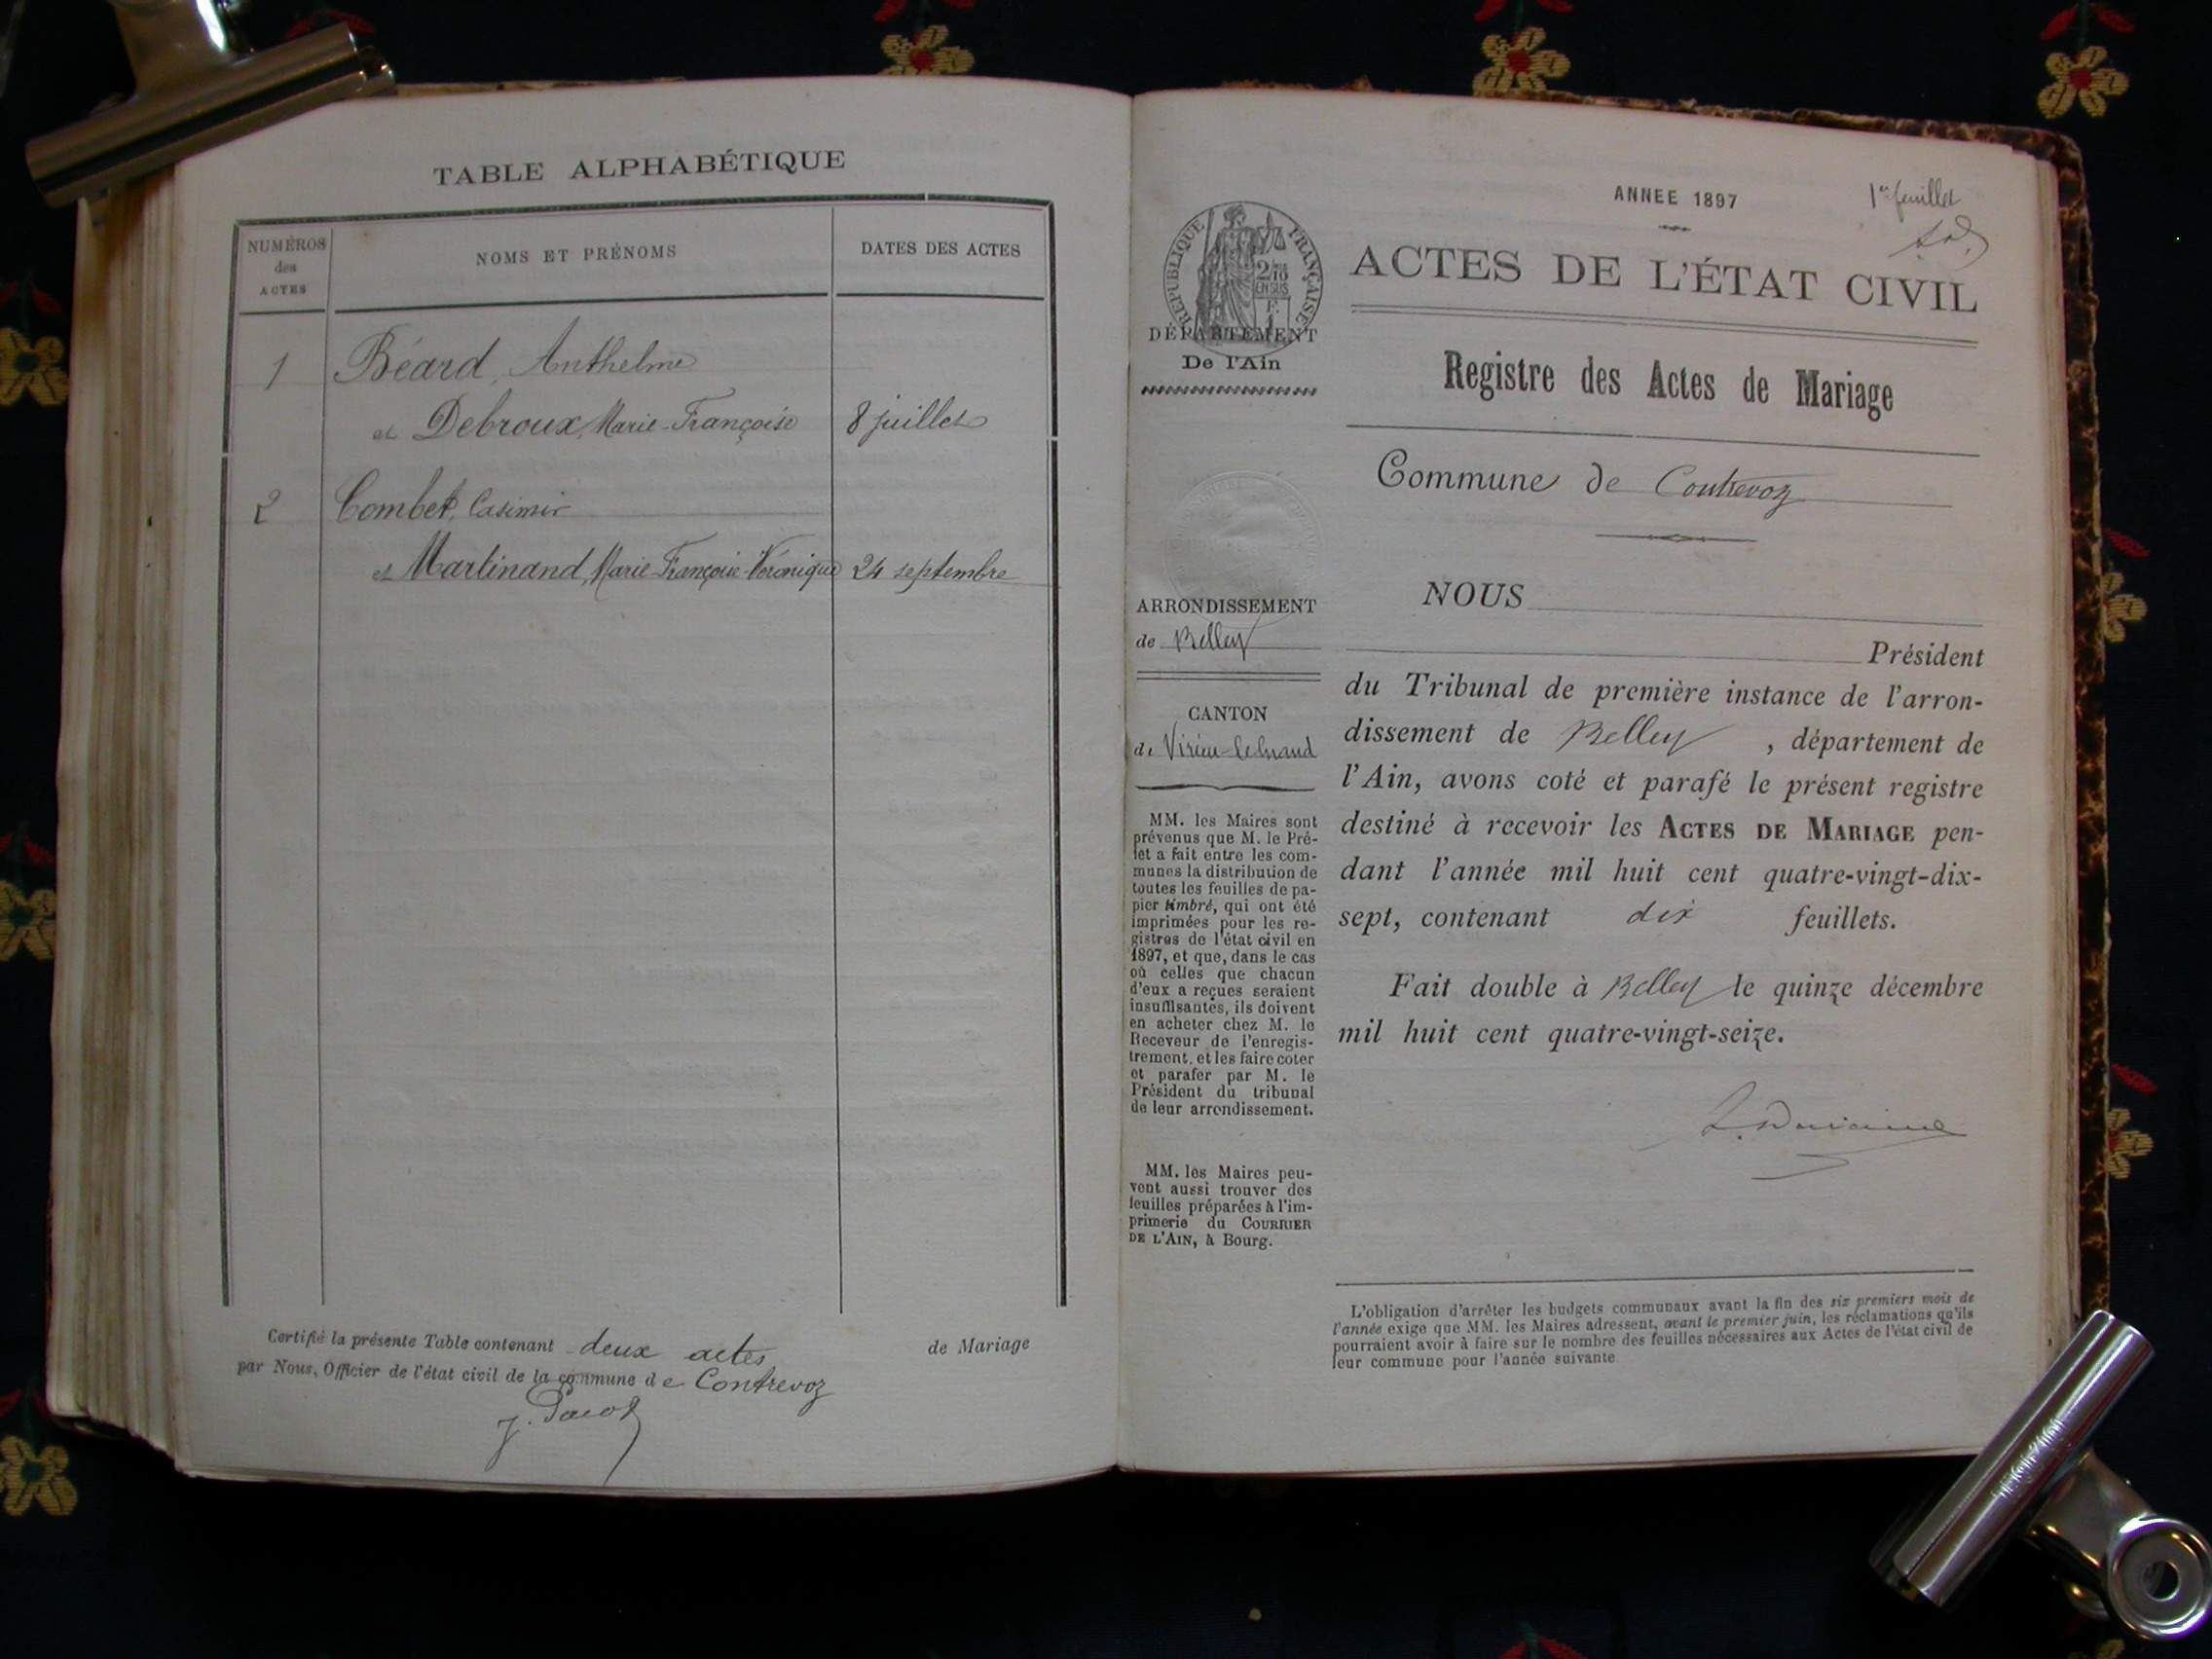 TABLE ALPHABÉTIQUE
NUMÉROS
des
ACTES
NOMS ET PRÉNOMS
DATES DES ACTES
1 Béard, Anthelme
et Debroux, Marie-Françoise 8 juillet
2 Combet, Casimir
et Martinand, Marie-Françoise-Véronique 24 septembre
Certifié la présente Table contenant deux actes de Mariage
par Nous, Officier de l'état civil de la commune de Contrevoz
1er feuillet
ANNEE 1897
ACTES DE L'ÉTAT CIVIL
Registre des Actes de Mariage
Commune de Contrevoz
RÉPUBLIQUE FRANÇAISE
2/10
EN SUS
F.
1
DÉPARTEMENT
De l'Ain
ARRONDISSEMENT
de Belley
CANTON
de Virieu-le-Grand
MM. les Maires sont
prévenus que M. le Pré-
fet a fait entre les com-
munes la distribution de
toutes les feuilles de pa-
pier timbré, qui ont été
imprimées pour les re-
gistres de l'état civil en
1897, et que, dans le cas
où celles que chacun
d'eux a reçues seraient
insuffisantes, ils doivent
en acheter chez M. le
Receveur de l'enregis-
trement, et les faire coter
et parafer par M. le
Président du tribunal
de leur arrondissement.
MM. les Maires peu-
vent aussi trouver des
feuilles préparées à l'im-
primerie du COURRIER
DE L'AIN, à Bourg.
NOUS
Président
du Tribunal de première instance de l'arron-
dissement de Belley, département de
l'Ain, avons coté et parafé le présent registre
destiné à recevoir les ACTES DE MARIAGE pen-
dant l'année mil huit cent quatre-vingt-dix-
sept, contenant dix feuillets.
Fait double à Belley le quinze décembre
mil huit cent quatre-vingt-seize.
L'obligation d'arrêter les budgets communaux avant la fin des six premiers mois de
l'année exige que MM. les Maires adressent, avant le premier juin, les réclamations qu'ils
pourraient avoir à faire sur le nombre des feuilles nécessaires aux Actes de l'état civil de
leur commune pour l'année suivante